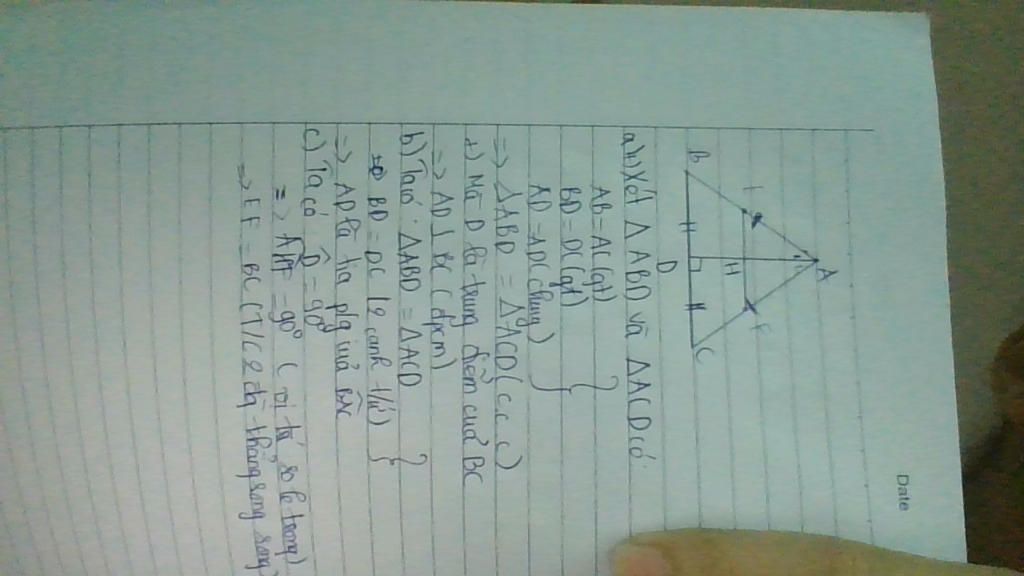 Date
A
F
H
B
D
C
a) Xét Δ ABD và Δ ACD có
AB = AC (gt)
BD = DC (gt)
AD = AD (chung)
=> Δ ABD = Δ ACD (c c c)
Mà D là trung điểm của BC
=> AD ⊥ BC (đpcm)
b) Ta có: ΔABD = ΔACD
BD = DC (2 cạnh t/ư)
=> AD là tia p/g của BAC
c) Ta có D = 90°
=> = 90° (vị trí so le trong)
=> EF = BC (T/c 2 đg thẳng song song)